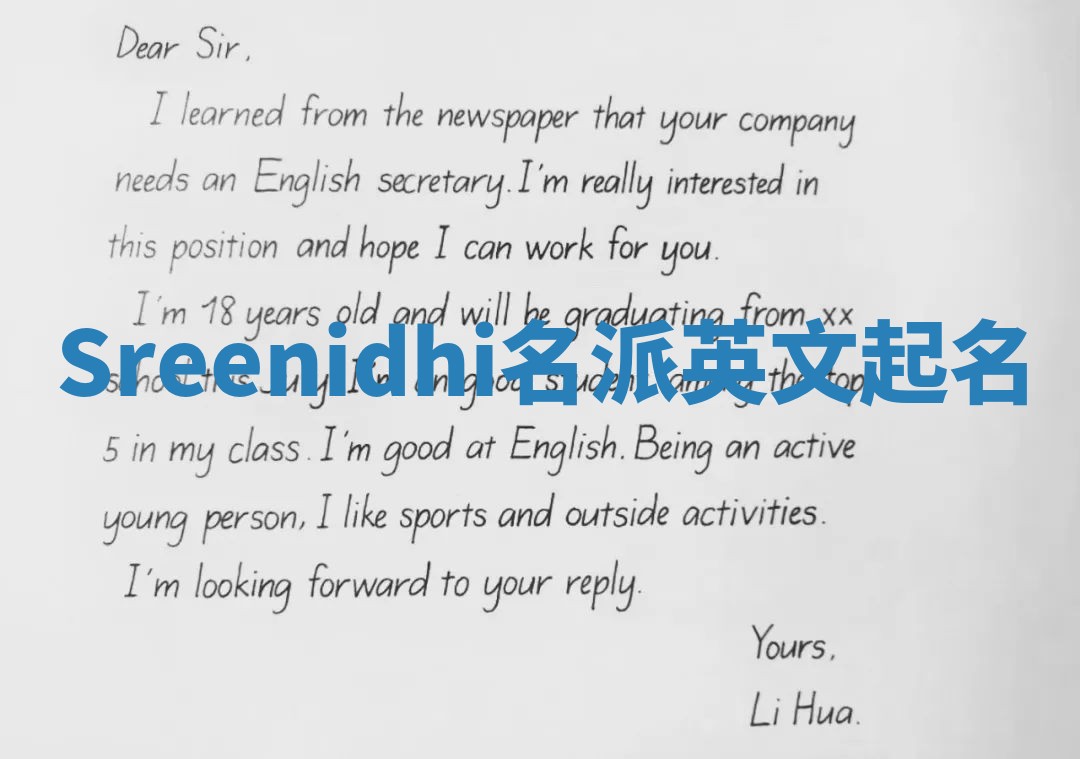 Dear Sir,
I learned from the newspaper that your company
needs an English secretary. I'm really interested in
this position and hope I can work for you.
I'm 18 years old and will be graduating from xx
Sreenidhi名派英文起名
school this July. I'm an good student, among the top
5 in my class. I'm good at English. Being an active
young person, I like sports and outside activities.
I'm looking forward to your reply.
Yours,
Li Hua.